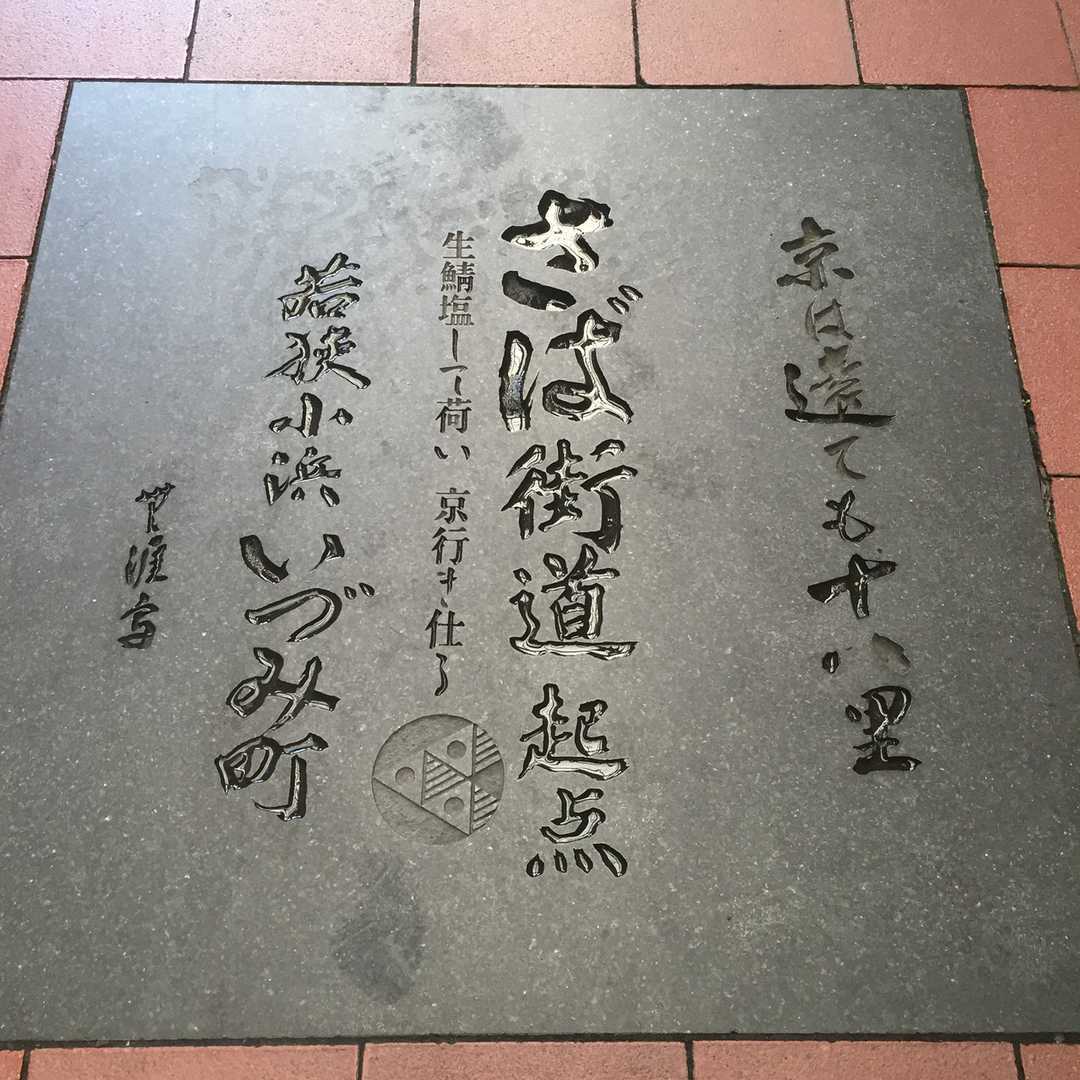 京は遠ても十八里
さば街道 起点
生鯖塩して荷い 京行き仕る
若狭小浜いづみ町